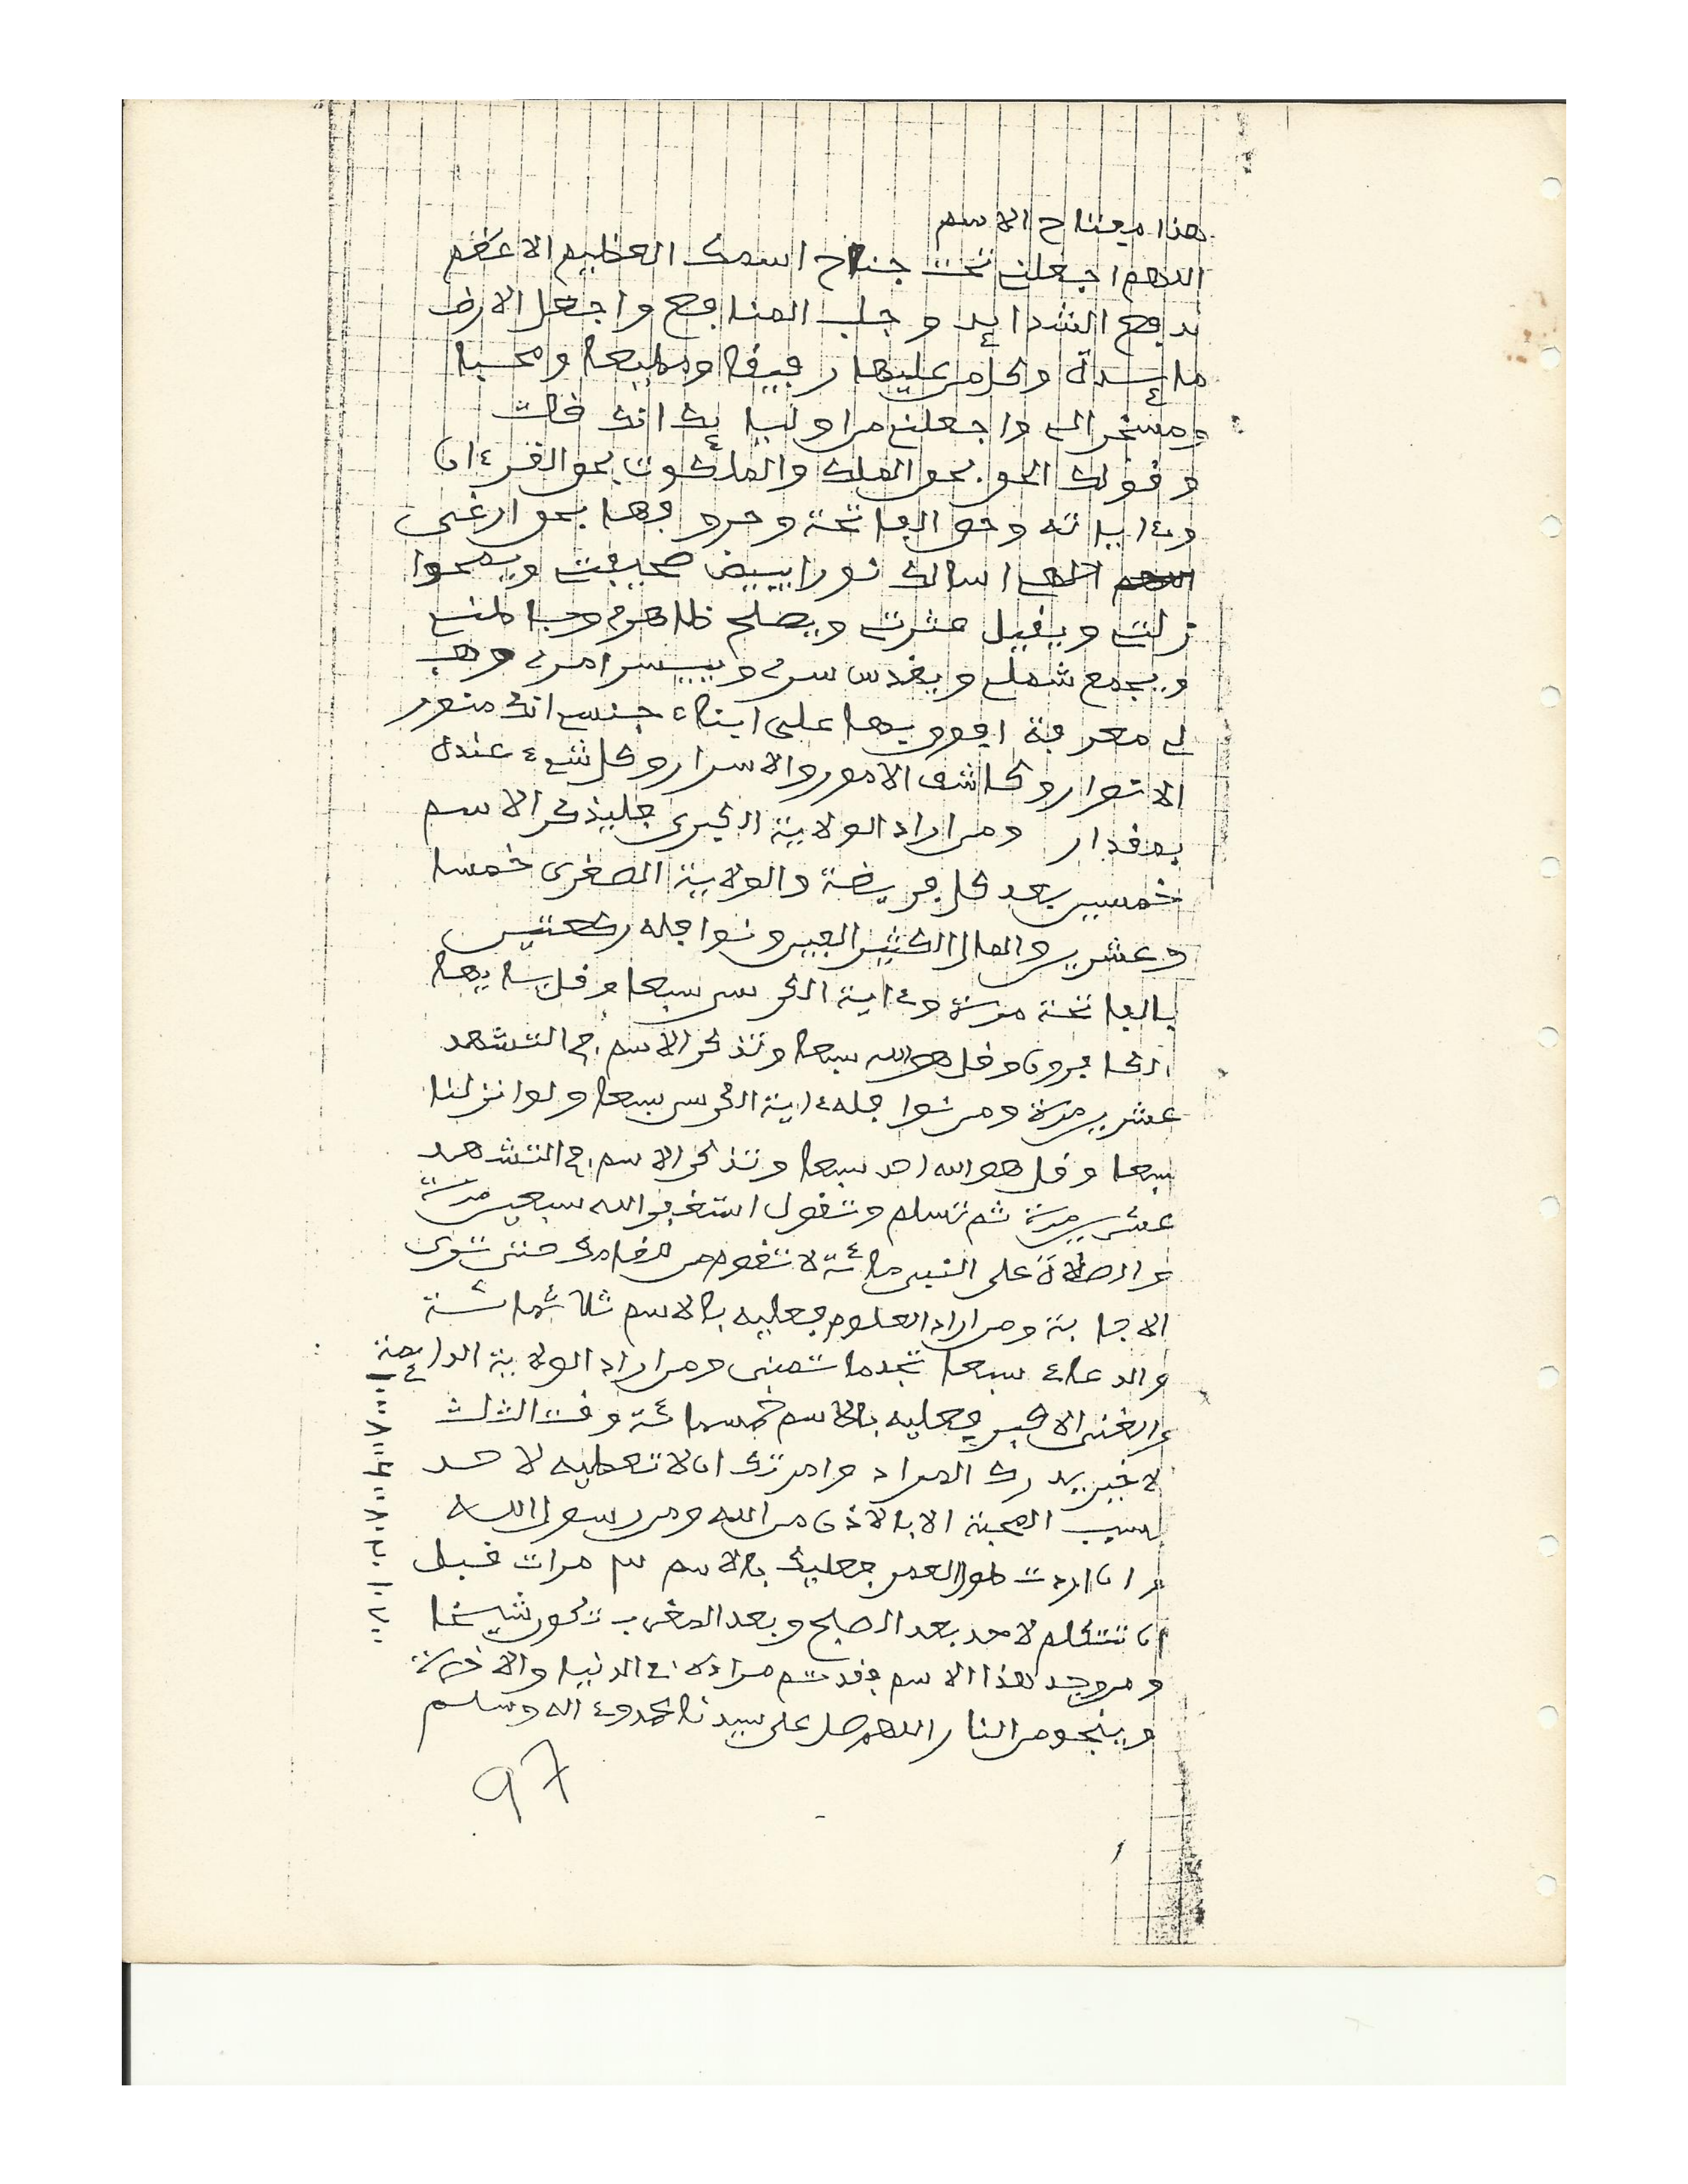 هذا مفتاح الاسم
اللهم اجعلني تحت جناح اسمك العظيم الاعظم
بدفع الشدايد وجلب المنافع واجعل الارض
مائدة وكل من عليها رفيقا ومطيعا ومحبا
ومسخرا لي واجعلني من اوليايك انك قلت
وقولك الحق بحق الملك والملكوت بحق القرءان
وءاياته وحق الفاتحة وحروفها بحق
الهي اسالك نورا يبيض صحيفتي ويمحوا
زلتي ويقيل عثرتي ويصلح ظاهري وباطني
ويجمع شملي ويقدس سري وييسر امري وهب
لي معرفة افوق بها على ابناء جنسي انك منور
الانوار وكاشف الامور والاسرار وكل شيء عندك
بمقدار ومن اراد الولاية الكبرى فليذكر الاسم
خمسين بعد كل فريضة والولاية الصغرى خمسا
وعشرين والمال الكثير ونوافله ركعتين
بالفاتحة مرة وءاية الكرسي سبعا وقل يا ايها
الكافرون وقل هو الله سبعا وتذكر الاسم في التشهد
عشرين مرة ومن نوافله ءاية الكرسي سبعا ولو انزلنا
سبعا وقل هو الله احد سبعا وتذكر الاسم في التشهد
عشرين مرة ثم تسلم وتقول استغفر الله سبعين مرة
والصلاة على النبي مائة لا تقوم من مقامك حتى ترى
الاجابة ومن اراد العلوم فعليه بالاسم ثلاثمائة
والدعاء سبعا تجد ما تتمنى ومن اراد الولاية الدائمة
والغنى الاكبر فعليه بالاسم خمسمائة وقت الثلث
الاخير يدرك المراد وامرتك ان لا تعطيه لاحد
بسبب المحبة الا بالاذن من الله ومن رسول الله
وان اردت طول العمر فعليك بالاسم ٣ مرات قبل
ان تتكلم لاحد بعد الصبح وبعد المغرب تكون شيخا
ومن وجد هذا الاسم فقد تم مراده في الدنيا والاخرة
وينجو من النار اللهم صل على سيدنا محمد وءاله وسلم
97